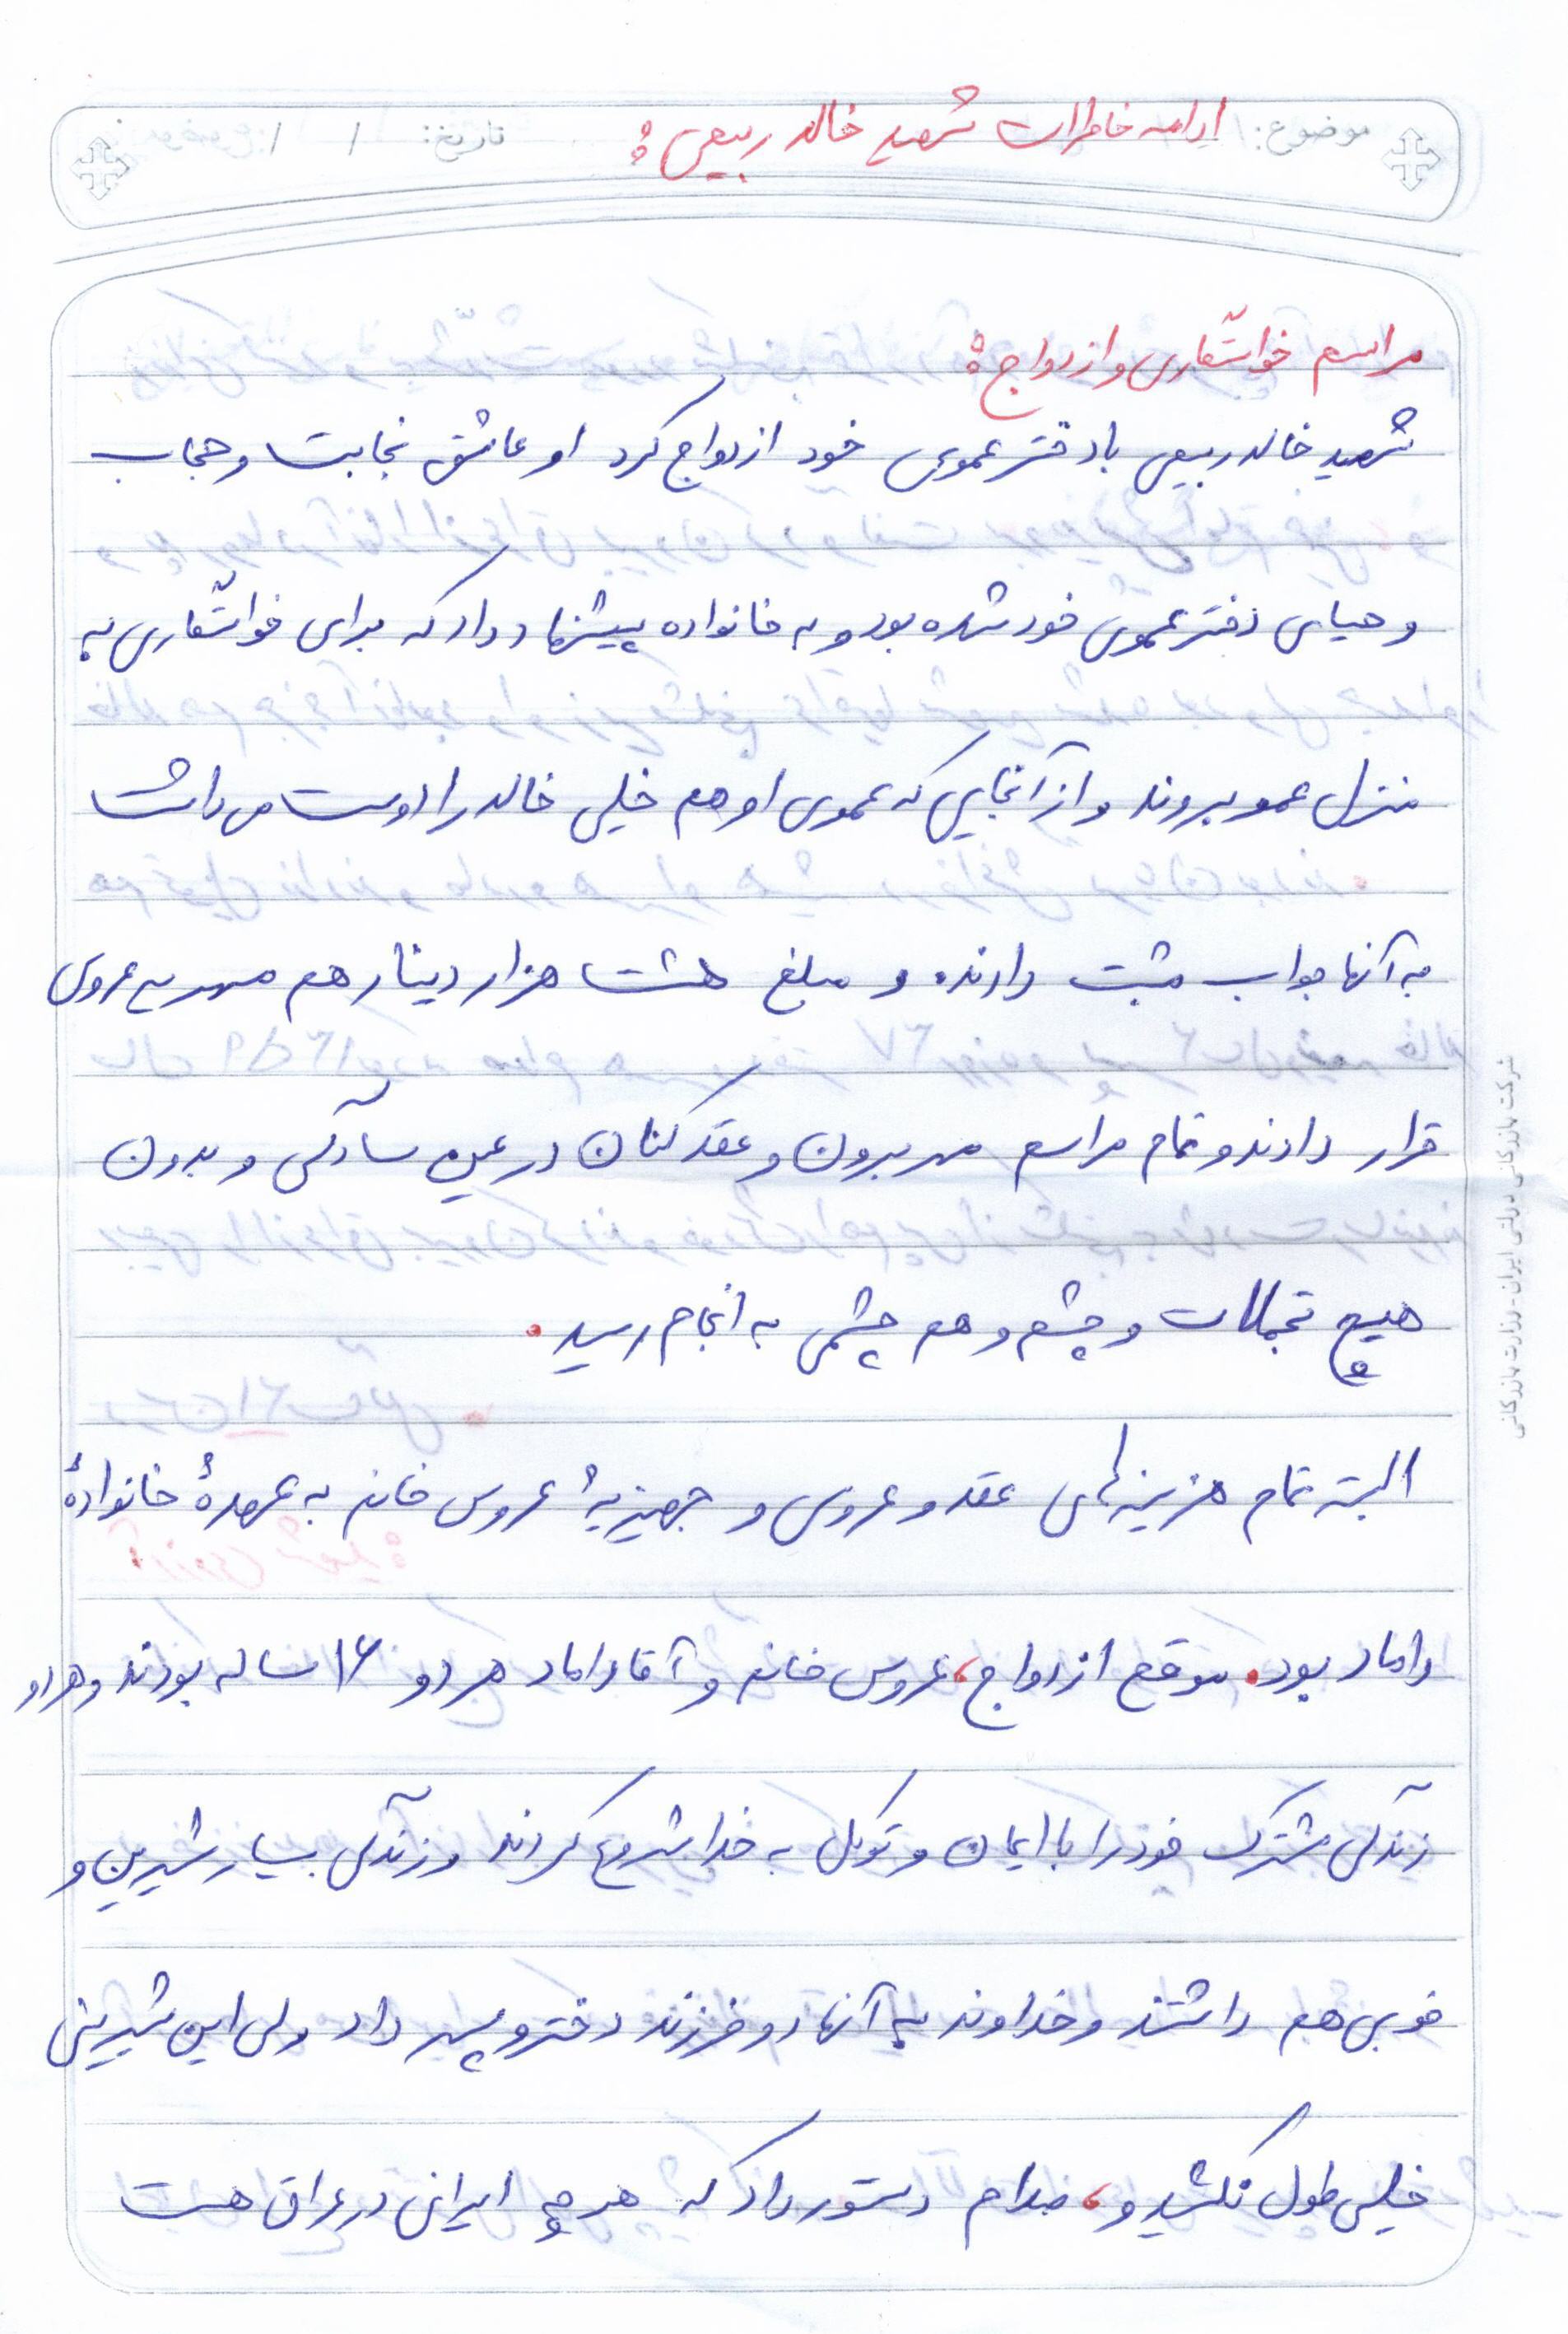 موضوع: ادامه خاطرات شهید خالد ربیعی: تاریخ: / /
مراسم خواستگاری و ازدواج:
شهید خالد ربیعی با دختر عموی خود ازدواج کرد او عاشق نجابت و حجاب
و حیای دختر عموی خود شده بود و به خانواده پیشنهاد داد که برای خواستگاری به
منزل عمو بروند و از آنجایی که عموی او هم خیلی خالد را دوست می داشت
به آنها جواب مثبت دادند و مبلغ هشت هزار دینار هم مهریه عروی
قرار دادند و تمام مراسم مهر برون و عقد کنان در عین سادگی و بدون
هیچ تجملات و چشم و هم چشمی به انجام رسید.
البته تمام هزینه های عقد و عروسی و جهیزیهٔ عروس خانم به عهدهٔ خانوادهٔ
داماد بود. موقع ازدواج، عروس خانم و آقا داماد هر دو ۱۶ ساله بودند و هر دو
زندگی مشترک خود را با ایمان و توکل به خدا شروع کردند و زندگی بسیار شیرین و
خوبی هم داشتند و خداوند به آنها دو فرزند دختر و پسر داد ولی این شیرینی
خیلی طول نکشید و، صدام دستور داد که هر چه ایرانی در عراق هست
شرکت بازرگانی دولتی ایران - وزارت بازرگانی